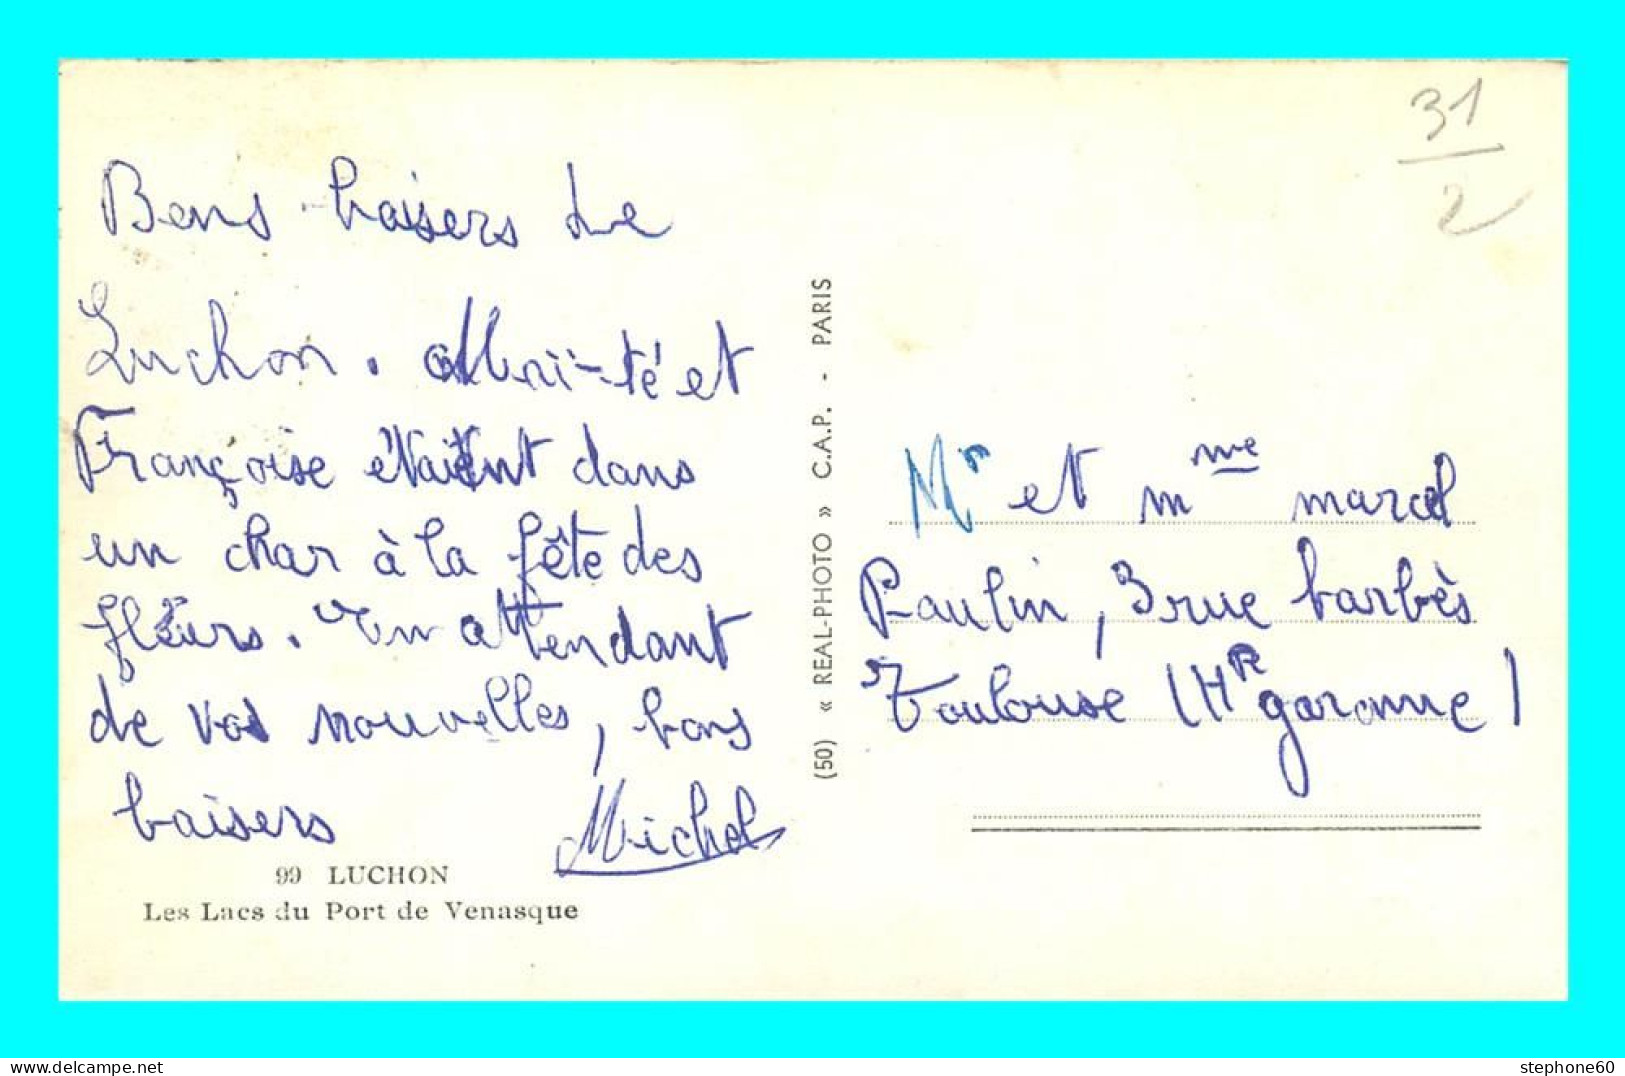 Bons baisers de
Luchon. et
Françoise étaient dans
un char à la fête des
fleurs. En attendant
de vos nouvelles, bons
baisers Michel
99 LUCHON
Les Lacs du Port de Venasque
(50) « REAL-PHOTO » C.A.P. - PARIS
31
2
Mr et mme marcel
Paulin, 3 rue barbès
Toulouse (Hte garonne)
www.delcampe.net
stephone60